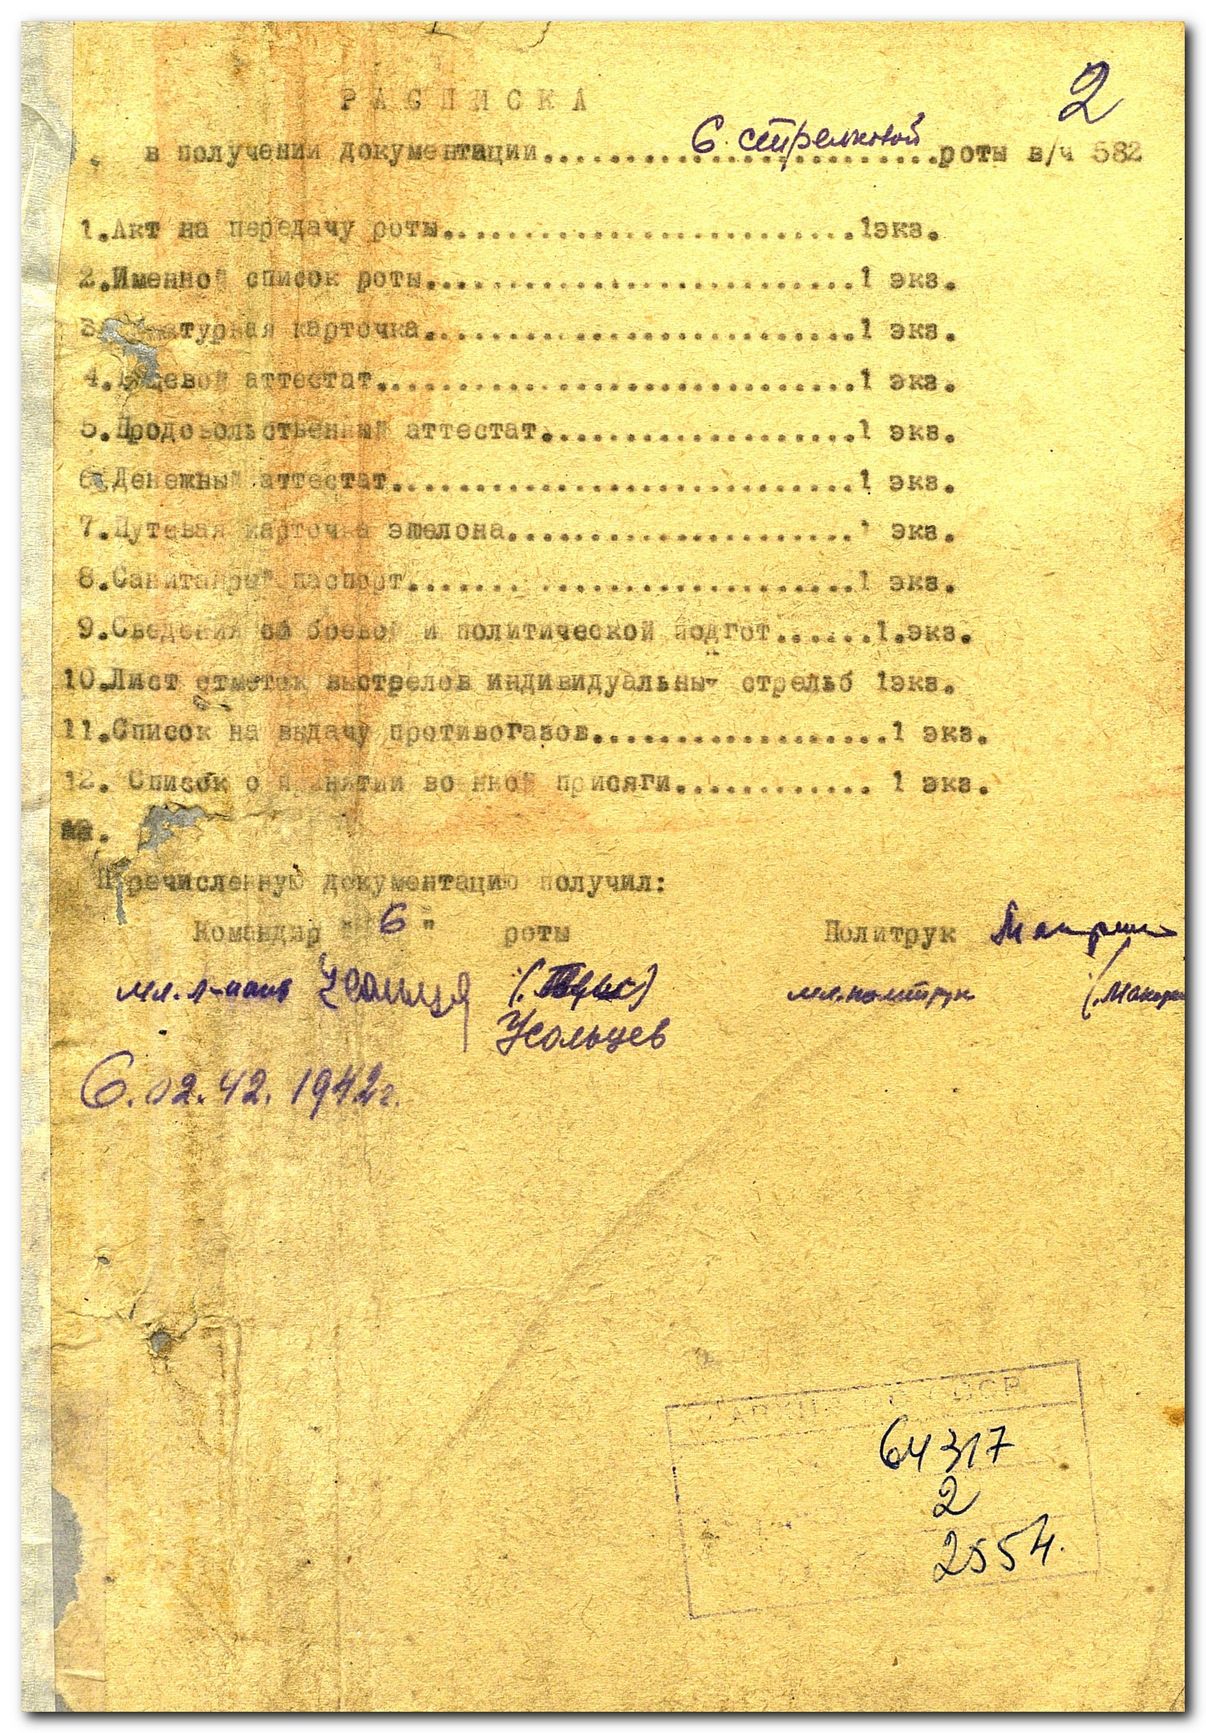 2
РАСПИСКА
в получении документации..........6 стрелковой..........роты в/ч 582
1.Акт на передачу роты..........................1экз.
2.Именной список роты...........................1 экз.
3. турная карточка...........................1 экз.
4. аттестат..............................1 экз.
5.Продовольственный аттестат....................1 экз.
6.Денежный аттестат.............................1 экз.
7.Путевая карточка эшелона...................... экз.
8.Санитарный паспорт....... ....................1 экз.
9.Сведения о боевой и политической подгот......1.экз.
10.Лист отметок выстрелов индивидуальных стрельб 1экз.
11.Список на выдачу противогазов..................1 экз.
12. Список о принятии военной присяги............ 1 экз.
Перечисленную документацию получил:
Командир "6" роты Политрук
мл. л-нант (. ) мл. политрук
Усольцев
6.02.42. 1942г.
64317
2
2554.